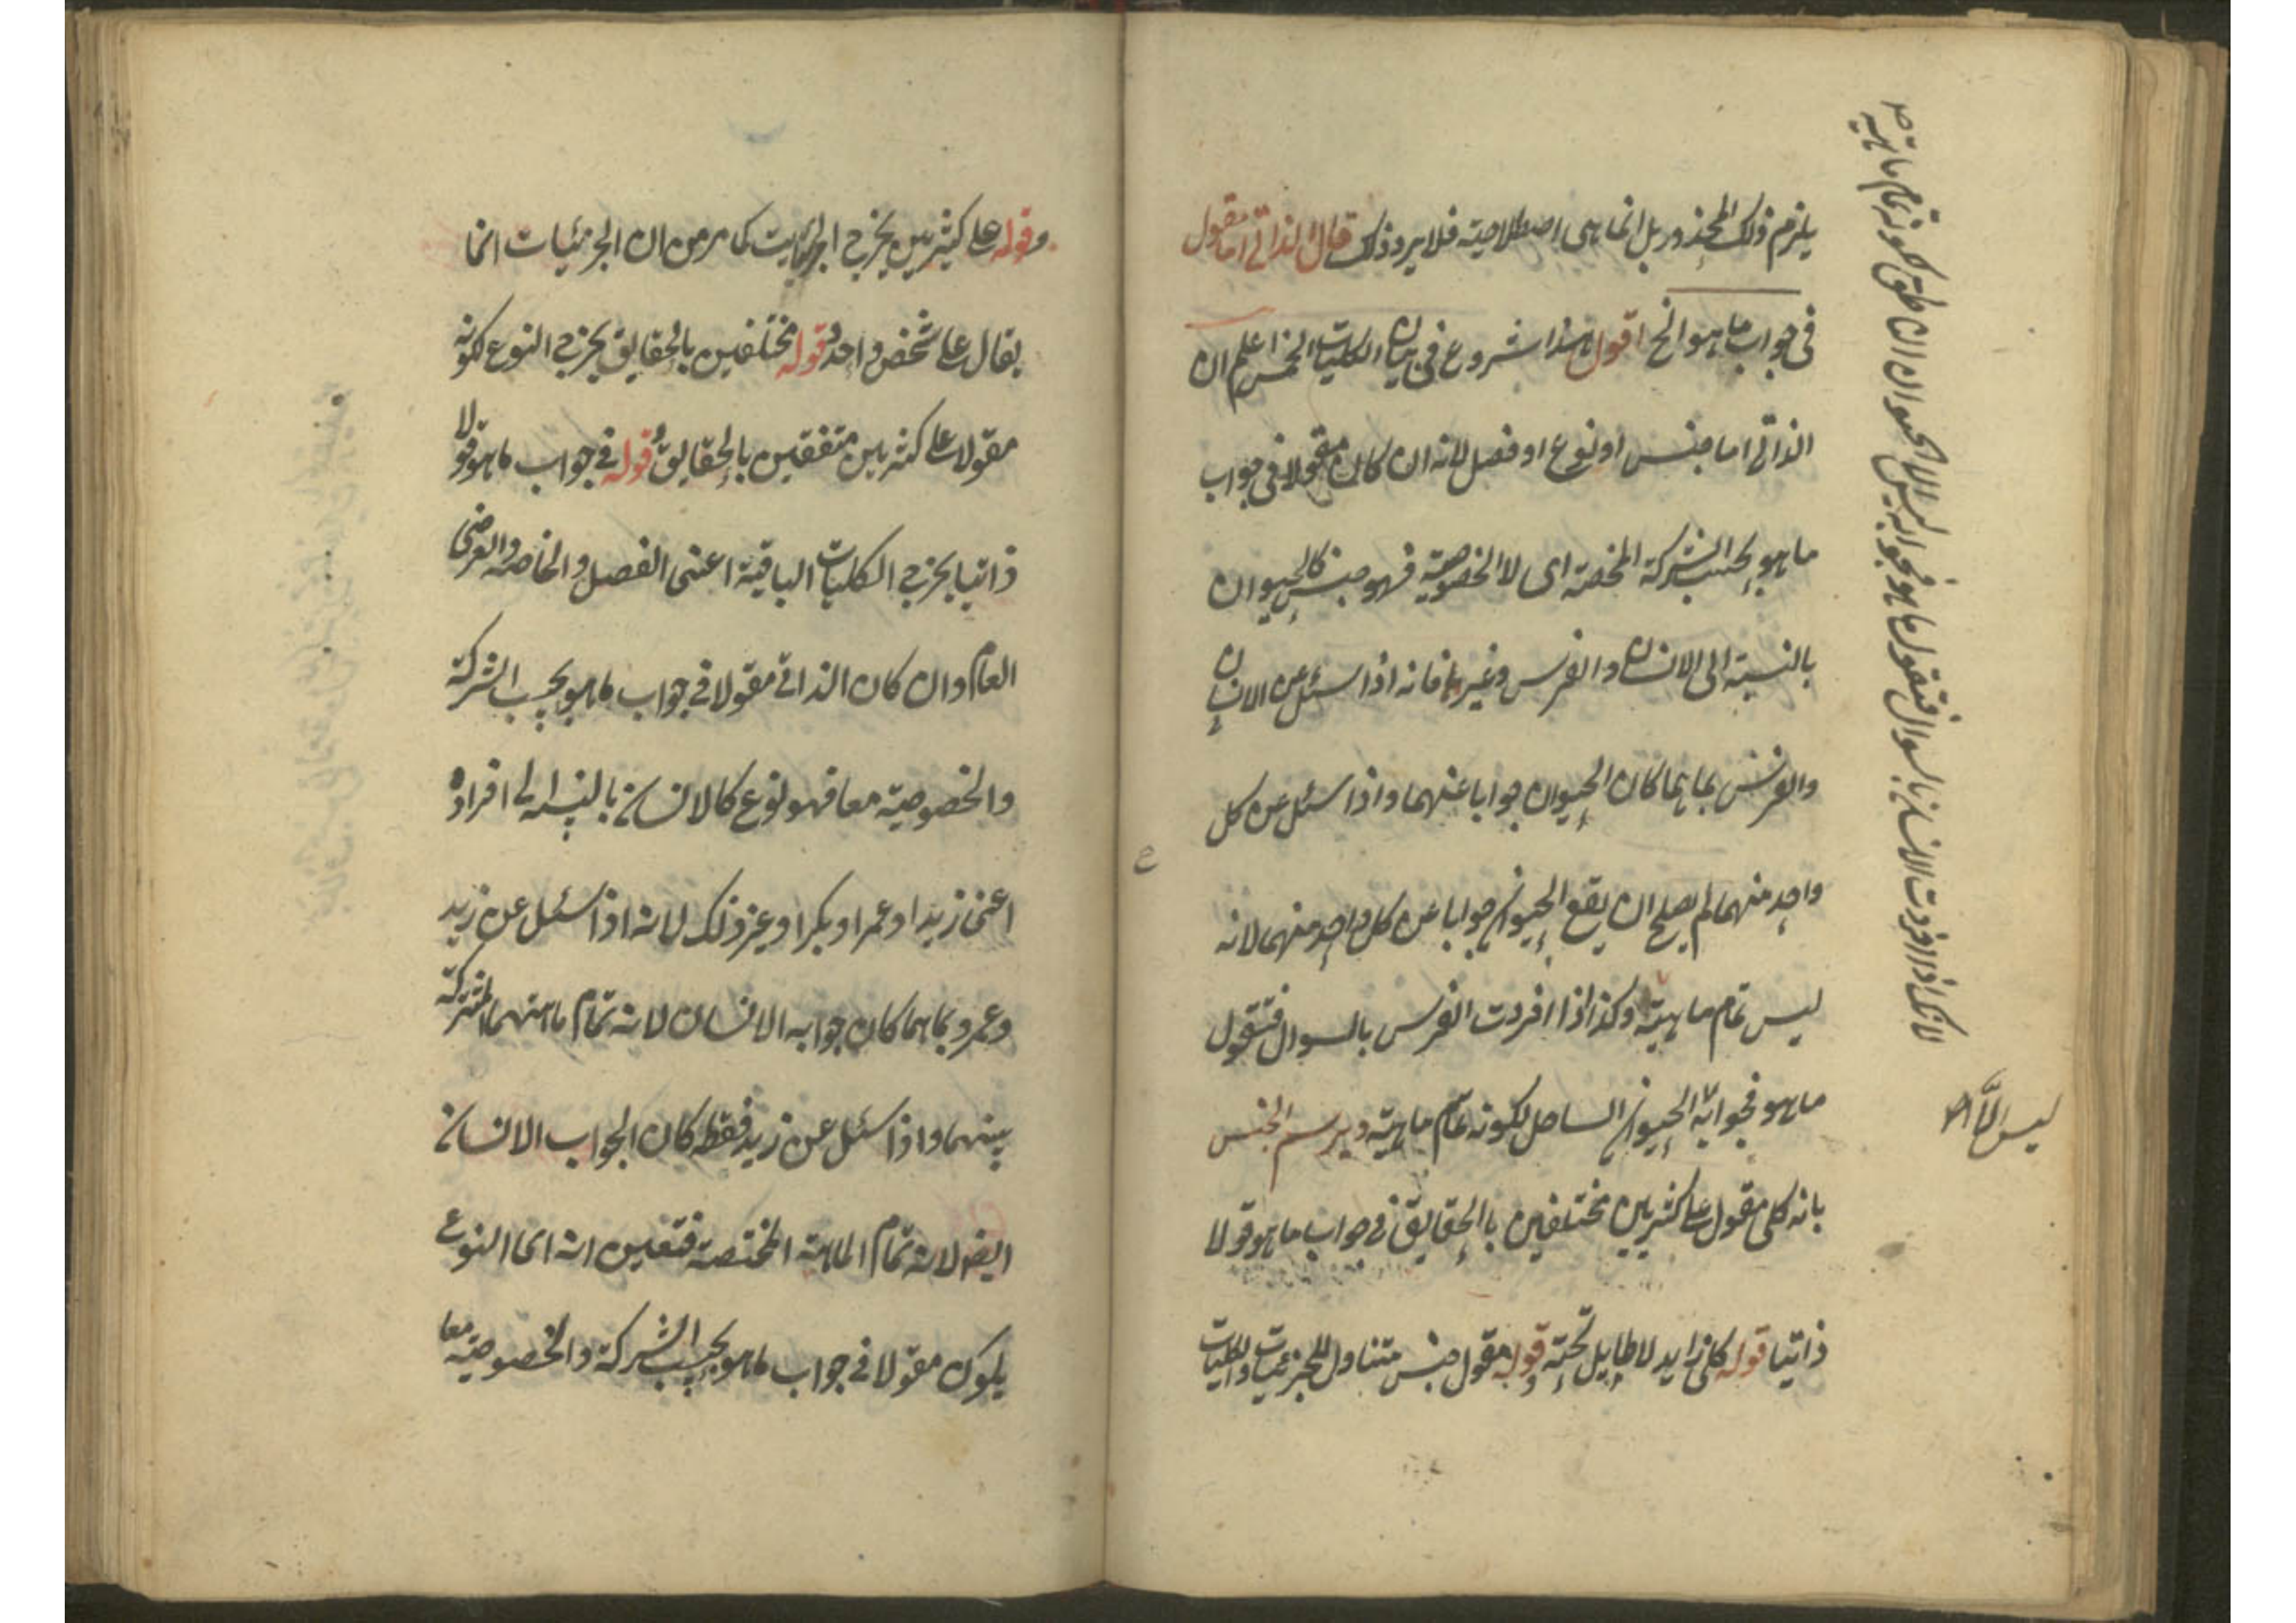 يلزم ذلك المحذور بل انما هى اصطلاحية فلا يرد ذلك قال الذاتى اما مقول
فى جواب ما هو الخ اقول هذا شروع فى بيان الكليات الخمس اعلم ان
الذاتى اما جنس او نوع او فصل لانه ان كان مقولا فى جواب
ما هو بحسب الشركة المحضة اى لا الخصوصية فهو جنس كالحيوان
بالنسبة الى الانسان والفرس وغيرها فانه اذا سئل عن الانسان
والفرس بما هما كان الحيوان جوابا عنهما واذا سئل عن كل
واحد منهما لم يصلح ان يقع الحيوان جوابا عن كل واحد منهما لانه
ليس تمام ماهيته وكذا اذا افردت الفرس بالسوال فتقول
ما هو فجوابه الحيوان الصاهل لكونه تمام ماهيته ويرسم الجنس
بانه كلى مقول على كثيرين مختلفين بالحقايق فى جواب ما هو قولا
ذاتيا قوله كلى زايد لا طايل تحته وقوله مقول جنس متناول للجزئيات والكليات
لانك اذا افردت الانسان بالسوال فتقول ما هو فجوابه ليس الا الحيوان الناطق لكونه تمام ماهيته
ليس الا
وقوله على كثيرين يخرج الجزئيات كما مر من ان الجزئيات انما
يقال على شخص واحد وقوله مختلفين بالحقايق يخرج النوع لكونه
مقولا على كثيرين متفقين بالحقايق وقوله فى جواب ما هو قولا
ذاتيا يخرج الكليات الباقية اعنى الفصل والخاصة والعرضى
العام وان كان الذاتى مقولا فى جواب ما هو بحسب الشركة
والخصوصية معا فهو نوع كالانسان بالنسبة الى افراده
اعنى زيدا وعمرا وبكرا وغير ذلك لانه اذا سئل عن زيد
وعمرو بما هما كان جوابه الانسان لانه تمام ماهيتهما المشتركة
بينهما واذا سئل عن زيد فقط كان الجواب الانسان
ايضا لانه تمام الماهية المختصة فتعين انه اى النوع
يكون مقولا فى جواب ما هو بحسب الشركة والخصوصية معا